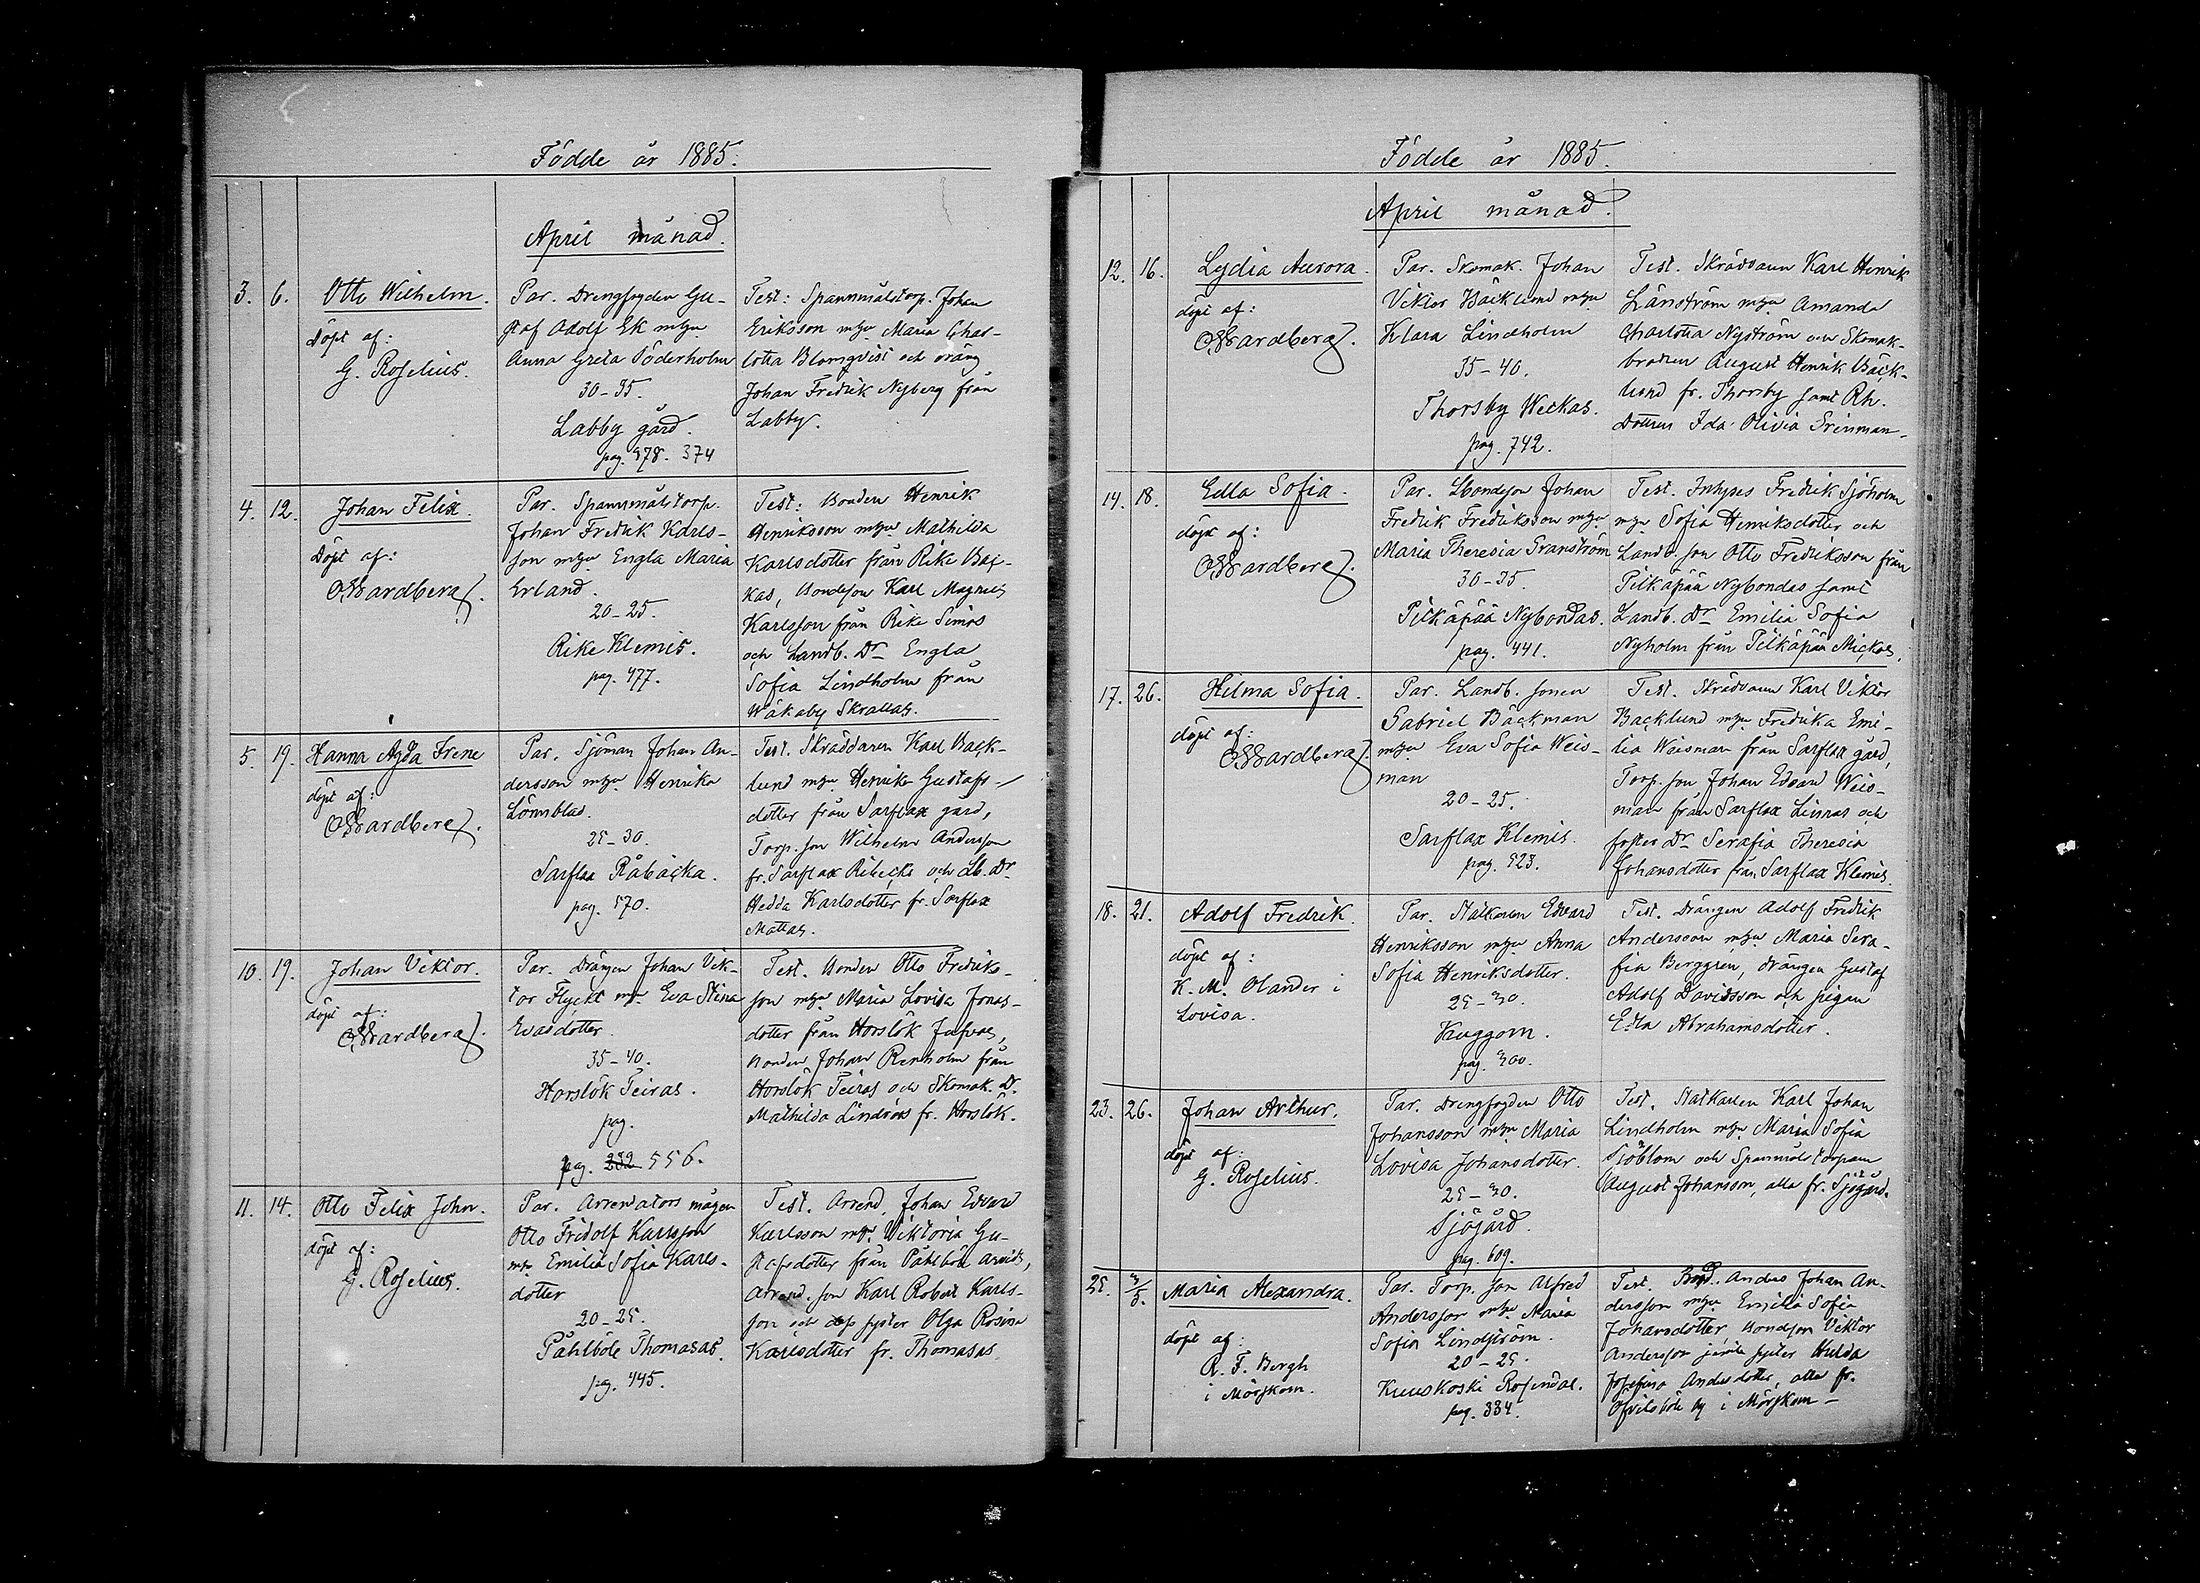 Födde år 1885.
April månad.
3. 6. Otto Wilhelm.
döpt af:
G. Roselius.
Par. Drengfogden Gu-
staf Adolf Ek mhu
Anna Greta Söderholm
30-35.
Labby gård.
pag. 378. 374
Test: Spannmålstorp. Johan
Eriksson mhu Maria Char-
lotta Blomqvist och dräng
Johan Fredrik Nyberg från
Labby.
4. 12. Johan Felix.
Döpt af:
Wardberg.
Par. Spannmålstorp.
Johan Fredrik Karls-
son mhu Engla Maria
Erland.
20-25.
Rike Klemis.
pag. 477.
Test: Bonden Henrik
Henriksson mhu Mathilda
Karlsdotter från Rike Bac-
kas, Bondson Karl Magnus
Karlsson från Rike Simos
och Landb. Dr Engla
Sofia Lindholm från
Wäkaby Skrallas.
5. 19. Hanna Agda Irene
döpt af:
Wardberg.
Par. Sjöman Johan An-
dersson mhu Henrika
Lönnblad.
25-30.
Sarflax Råbäcka.
pag. 570.
Test. Skräddaren Karl Back-
lund mhu Henrika Gustafs-
dotter från Sarflax gård,
Torp. son Wilhelm Andersson
fr. Sarflax Ribäcka och Lb. Dr
Hedda Karlsdotter fr. Sarflax
Mattas.
10. 19. Johan Viktor.
döpt af:
Wardberg.
Par. Drängen Johan Vik-
tor Flyckt mhu Eva Stina
Evasdotter.
35-40.
Horslök Teiras.
pag.
pag. 232 556.
Test. Bonden Otto Fredriks-
son mhu Maria Lovisa Jonas-
dotter från Horslök
Bonden Johan Renholm från
Horslök Teiras och Skomak. Dr.
Mathilda Lindroos fr. Horslök.
11. 14. Otto Felix John.
döpt af:
G. Roselius.
Par. Arrendators mågen
Otto Fridolf Karlsson
mhu Emilia Sofia Karls-
dotter
20-25.
Påhlböle Thomasas.
pag. 445.
Test. Arrend. Johan Edvard
Karlsson mhu Viktoria Gu-
stafsdotter från Påhlböle
Arrend. son Karl Robert Karls-
son och dess syster Olga Rosina
Karlsdotter fr. Thomasas.
Födde år 1885.
April månad.
12. 16. Lydia Aurora.
döpt af:
Wardberg.
Par. Skomak. Johan
Viktor Bäcklund mhu
Klara Lindholm
35-40.
Thorsby Weckas.
pag. 742.
Test. Skräddaren Karl Henrik
Länström mhu Amanda
Charlotta Nyström och Skomak-
brodren August Henrik Bäck-
lund fr. Thorsby samt Rh.
Dottren Ida Olivia Grinman.
14. 18. Edla Sofia.
döpt af:
Wardberg.
Par. Bondson Johan
Fredrik Fredriksson mhu
Maria Theresia Granström
30-35
Pitkäpää Nybondas.
pag. 441.
Test. Inhyses Fredrik Sjöholm
mhu Sofia Henriksdotter och
Landb. son Otto Fredriksson från
Pitkäpää Nybondas samt
Landb. Dr Emilia Sofia
Nyholm från Pitkäpää Mickos.
17. 26. Hilma Sofia.
döpt af:
Wardberg.
Par. Landb. sonen
Gabriel Bäckman
mhu Eva Sofia Weis-
man
20-25.
Sarflax Klemis.
pag. 523.
Test. Skräddaren Karl Viktor
Backlund mhu Fredrika Emi-
lia Weisman från Sarflax gård,
Torp. son Johan Edvard Weis-
man från Sarflax Linnas och
foster Dr Serafia Theresia
Johansdotter från Sarflax Klemis.
18. 21. Adolf Fredrik.
döpt af:
K. M. Olander i
Lovisa.
Par. Statkarlen Edvard
Henriksson mhu Anna
Sofia Henriksdotter.
25-30.
Kuggom.
pag. 300.
Test. Drängen Adolf Fredrik
Andersson mhu Maria Sera-
fia Berggren, drängen Gustaf
Adolf Davidsson och pigan
Edla Abrahamsdotter.
23. 26. Johan Arthur.
döpt af:
G. Roselius.
Par. Drengfogden Otto
Johansson mhu Maria
Lovisa Johansdotter.
25-30.
Sjögård.
pag. 609.
Test. Statkarlen Karl Johan
Lindholm mhu Maria Sofia
Sjöblom och Spannmålstorparen
August Johansson, alla fr. Sjögård.
25. 3/5. Maria Alexandra.
döpt af:
R. F. Bergh
i Mörskom.
Par. Torp. son Alfred
Andersson mhu Maria
Sofia Lindström.
20-25.
Kuuskoski Rosendal.
pag. 334.
Test. Bond. Anders Johan An-
dersson mhu Emilia Sofia
Johansdotter, Bondson Viktor
Andersson jemte syster Hulda
Josefina Andersdotter, alla fr.
by i Mörskom-